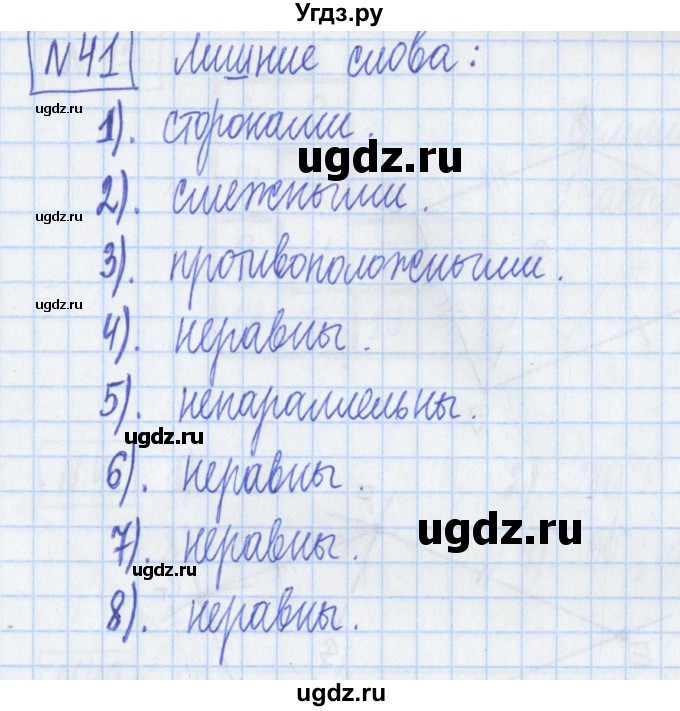 Угдз.ру
№41 Лишние слова:
ugdz.ru
1). сторонами.
ugdz.ru
2). смежными.
ugdz.ru
3). противоположными.
ugdz.ru
4). неравны.
5). непараллельны.
ugdz.ru
6). неравны.
ugdz.ru
7). неравны.
ugdz.ru
8). неравны.
ugdz.ru